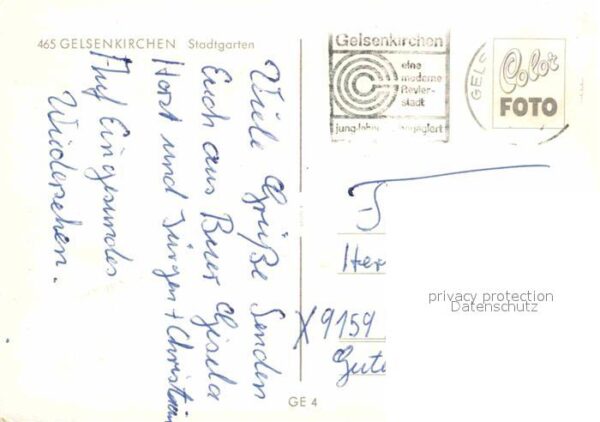 465 GELSENKIRCHEN Stadtgarten
Viele Grüße Senden
Euch aus Buer Gisela
Horst und Jürgen + Christian
Auf Ein gesundes
Wiedersehen.
Gelsenkirchen
eine
moderne
Revier-
stadt
GELS
Color
FOTO
Her
privacy protection
Datenschutz
X 9159
Gute
GE 4